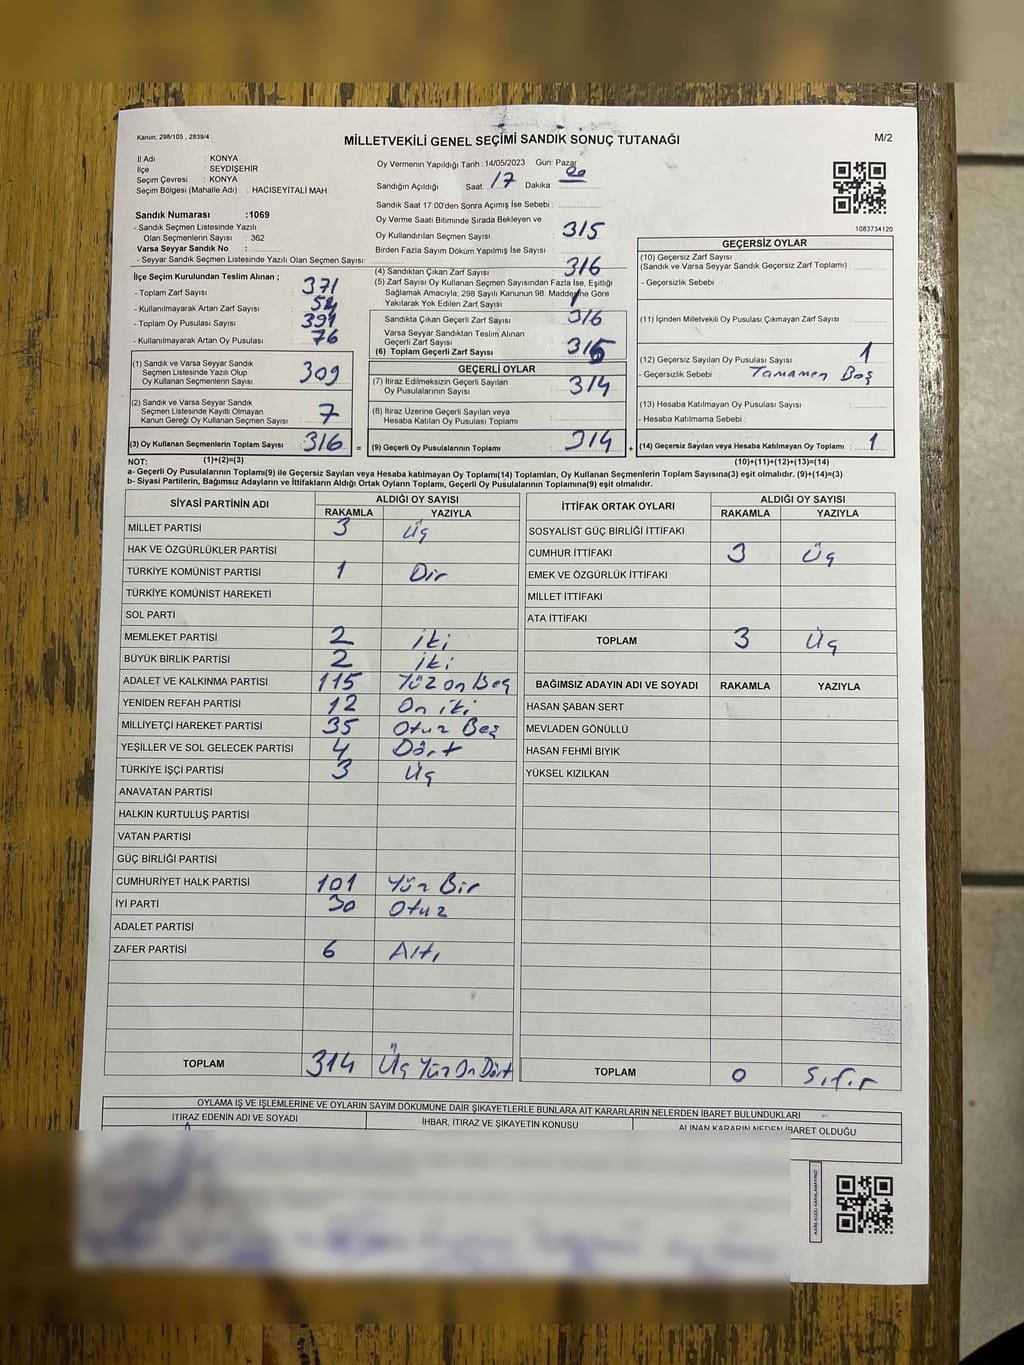 Kanun; 298/105 , 2839/4
MİLLETVEKİLİ GENEL SEÇİMİ SANDIK SONUÇ TUTANAĞI
M/2
İl Adı : KONYA
İlçe : SEYDİŞEHİR
Seçim Çevresi : KONYA
Seçim Bölgesi (Mahalle Adı) : HACISEYİTALİ MAH.
Oy Vermenin Yapıldığı Tarih : 14/05/2023 Gün: Pazar
Sandığın Açıldığı Saat: 17 Dakika : 00
Sandık Saat 17:00'den Sonra Açımış İse Sebebi :
Sandık Numarası :1069
- Sandık Seçmen Listesinde Yazılı
Olan Seçmenlerin Sayısı : 362
Varsa Seyyar Sandık No :
- Seyyar Sandık Seçmen Listesinde Yazılı Olan Seçmen Sayısı:
Oy Verme Saati Bitiminde Sırada Bekleyen ve
Oy Kullandırılan Seçmen Sayısı : 315
Birden Fazla Sayım Döküm Yapılmış İse Sayısı :
1083734120
İlçe Seçim Kurulundan Teslim Alınan ;
- Toplam Zarf Sayısı : 371
- Kullanılmayarak Artan Zarf Sayısı : 54
- Toplam Oy Pusulası Sayısı : 391
- Kullanılmayarak Artan Oy Pusulası : 76
(4) Sandıktan Çıkan Zarf Sayısı : 316
(5) Zarf Sayısı Oy Kullanan Seçmen Sayısından Fazla İse, Eşitliği
Sağlamak Amacıyla; 298 Sayılı Kanunun 98. Maddesine Göre
Yakılarak Yok Edilen Zarf Sayısı
Sandıkta Çıkan Geçerli Zarf Sayısı : 316
Varsa Seyyar Sandıktan Teslim Alınan
Geçerli Zarf Sayısı :
(6) Toplam Geçerli Zarf Sayısı
(1) Sandık ve Varsa Seyyar Sandık
Seçmen Listesinde Yazılı Olup
Oy Kullanan Seçmenlerin Sayısı : 309
(2) Sandık ve Varsa Seyyar Sandık
Seçmen Listesinde Kayıtlı Olmayan
Kanun Gereği Oy Kullanan Seçmen Sayısı : 7
(3) Oy Kullanan Seçmenlerin Toplam Sayısı : 316 =
GEÇERLİ OYLAR
(7) İtiraz Edilmeksizin Geçerli Sayılan
Oy Pusulalarının Sayısı : 314
(8) İtiraz Üzerine Geçerli Sayılan veya
Hesaba Katılan Oy Pusulası Toplamı :
(9) Geçerli Oy Pusulalarının Toplamı : 314 +
GEÇERSİZ OYLAR
(10) Geçersiz Zarf Sayısı
(Sandık ve Varsa Seyyar Sandık Geçersiz Zarf Toplamı) :
- Geçersizlik Sebebi :
(11) İçinden Milletvekili Oy Pusulası Çıkmayan Zarf Sayısı :
(12) Geçersiz Sayılan Oy Pusulası Sayısı : 1
- Geçersizlik Sebebi : Tamamen Boş
(13) Hesaba Katılmayan Oy Pusulası Sayısı :
- Hesaba Katılmama Sebebi :
(14) Geçersiz Sayılan veya Hesaba Katılmayan Oy Toplamı : 1
NOT: (1)+(2)=(3)
(10)+(11)+(12)+(13)=(14)
a- Geçerli Oy Pusulalarının Toplamı(9) ile Geçersiz Sayılan veya Hesaba katılmayan Oy Toplamı(14) Toplamları, Oy Kullanan Seçmenlerin Toplam Sayısına(3) eşit olmalıdır. (9)+(14)=(3)
b- Siyasi Partilerin, Bağımsız Adayların ve İttifakların Aldığı Ortak Oyların Toplamı, Geçerli Oy Pusulalarının Toplamına(9) eşit olmalıdır.
SİYASİ PARTİNİN ADI ALDIĞI OY SAYISI
RAKAMLA YAZIYLA
MİLLET PARTİSİ 3 Üç
HAK VE ÖZGÜRLÜKLER PARTİSİ
TÜRKİYE KOMÜNİST PARTİSİ 1 Bir
TÜRKİYE KOMÜNİST HAREKETİ
SOL PARTİ
MEMLEKET PARTİSİ 2 iki
BÜYÜK BİRLİK PARTİSİ 2 iki
ADALET VE KALKINMA PARTİSİ 115 Yüz on Beş
YENİDEN REFAH PARTİSİ 12 On iki
MİLLİYETÇİ HAREKET PARTİSİ 35 Otuz Beş
YEŞİLLER VE SOL GELECEK PARTİSİ 4 Dört
TÜRKİYE İŞÇİ PARTİSİ 3 Üç
ANAVATAN PARTİSİ
HALKIN KURTULUŞ PARTİSİ
VATAN PARTİSİ
GÜÇ BİRLİĞİ PARTİSİ
CUMHURİYET HALK PARTİSİ 101 Yüz Bir
İYİ PARTİ 30 Otuz
ADALET PARTİSİ
ZAFER PARTİSİ 6 Altı
TOPLAM 314 Üç Yüz On Dört
İTTİFAK ORTAK OYLARI ALDIĞI OY SAYISI
RAKAMLA YAZIYLA
SOSYALİST GÜÇ BİRLİĞİ İTTİFAKI
CUMHUR İTTİFAKI 3 Üç
EMEK VE ÖZGÜRLÜK İTTİFAKI
MİLLET İTTİFAKI
ATA İTTİFAKI
TOPLAM 3 Üç
BAĞIMSIZ ADAYIN ADI VE SOYADI RAKAMLA YAZIYLA
HASAN ŞABAN SERT
MEVLADEN GÖNÜLLÜ
HASAN FEHMİ BIYIK
YÜKSEL KIZILKAN
TOPLAM 0 Sıfır
OYLAMA İŞ VE İŞLEMLERİNE VE OYLARIN SAYIM DÖKÜMÜNE DAİR ŞİKAYETLERLE BUNLARA AİT KARARLARIN NELERDEN İBARET BULUNDUKLARI
İTİRAZ EDENİN ADI VE SOYADI İHBAR, İTİRAZ VE ŞİKAYETİN KONUSU ALINAN KARARIN NEDEN İBARET OLDUĞU
KARE KODU KARALAMAYINIZ!